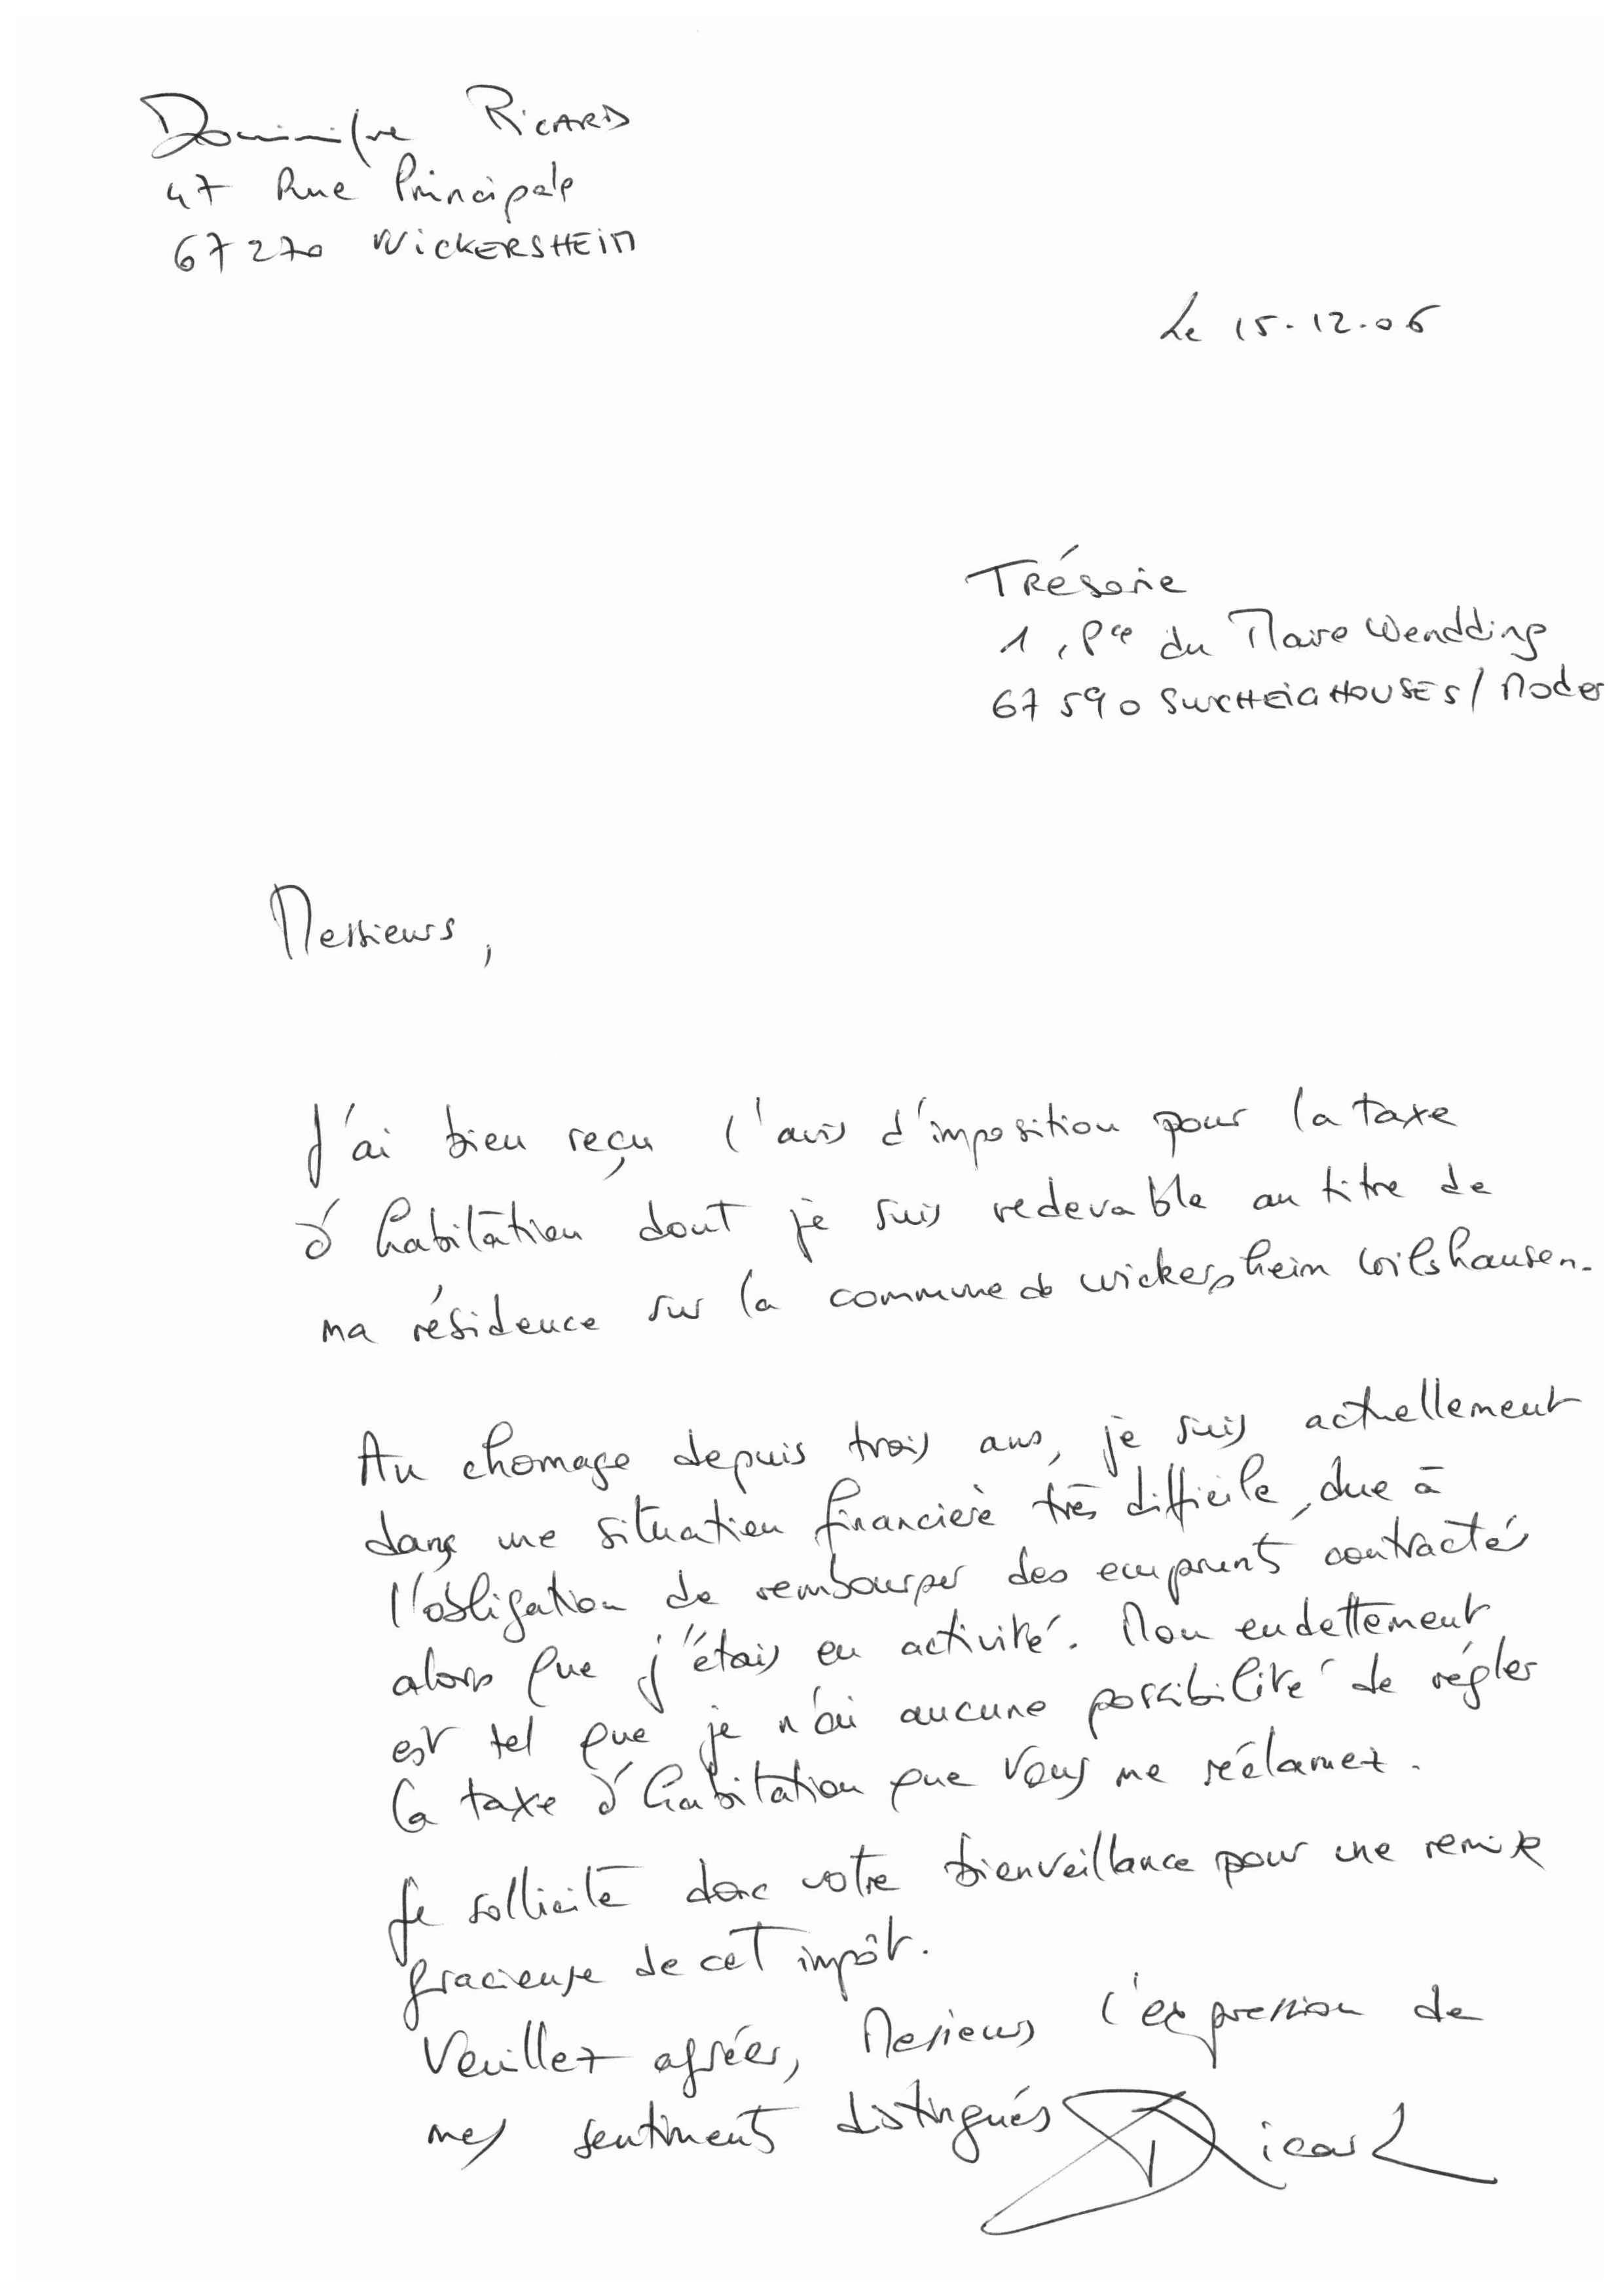 Dominique RICARD
47 Rue Principale
67270 WICKERSHEIM
Le 15.12.06
TRésorie
1, Pce du Maire Wendding
67590 SWCHEIGHOUSES / Moder
Messieurs,
J'ai bien reçu l'avis d'imposition pour la taxe
d'habitation dont je suis redevable au titre de
ma résidence sur la commune de Wickersheim Wilshausen.
Au chomage depuis trois ans, je suis actuellement
dans une situation financière très difficile, due à
l'obligation de rembourser des emprunts contractés
alors que j'étais en activité. Mon endettement
est tel que je n'ai aucune possibilité de régler
la taxe d'habitation que vous me réclamez.
Je sollicite donc votre bienveillance pour une remise
gracieuse de cet impôt.
Veuillez agréer, Messieurs l'expression de
mes sentiments distingués
DRicard